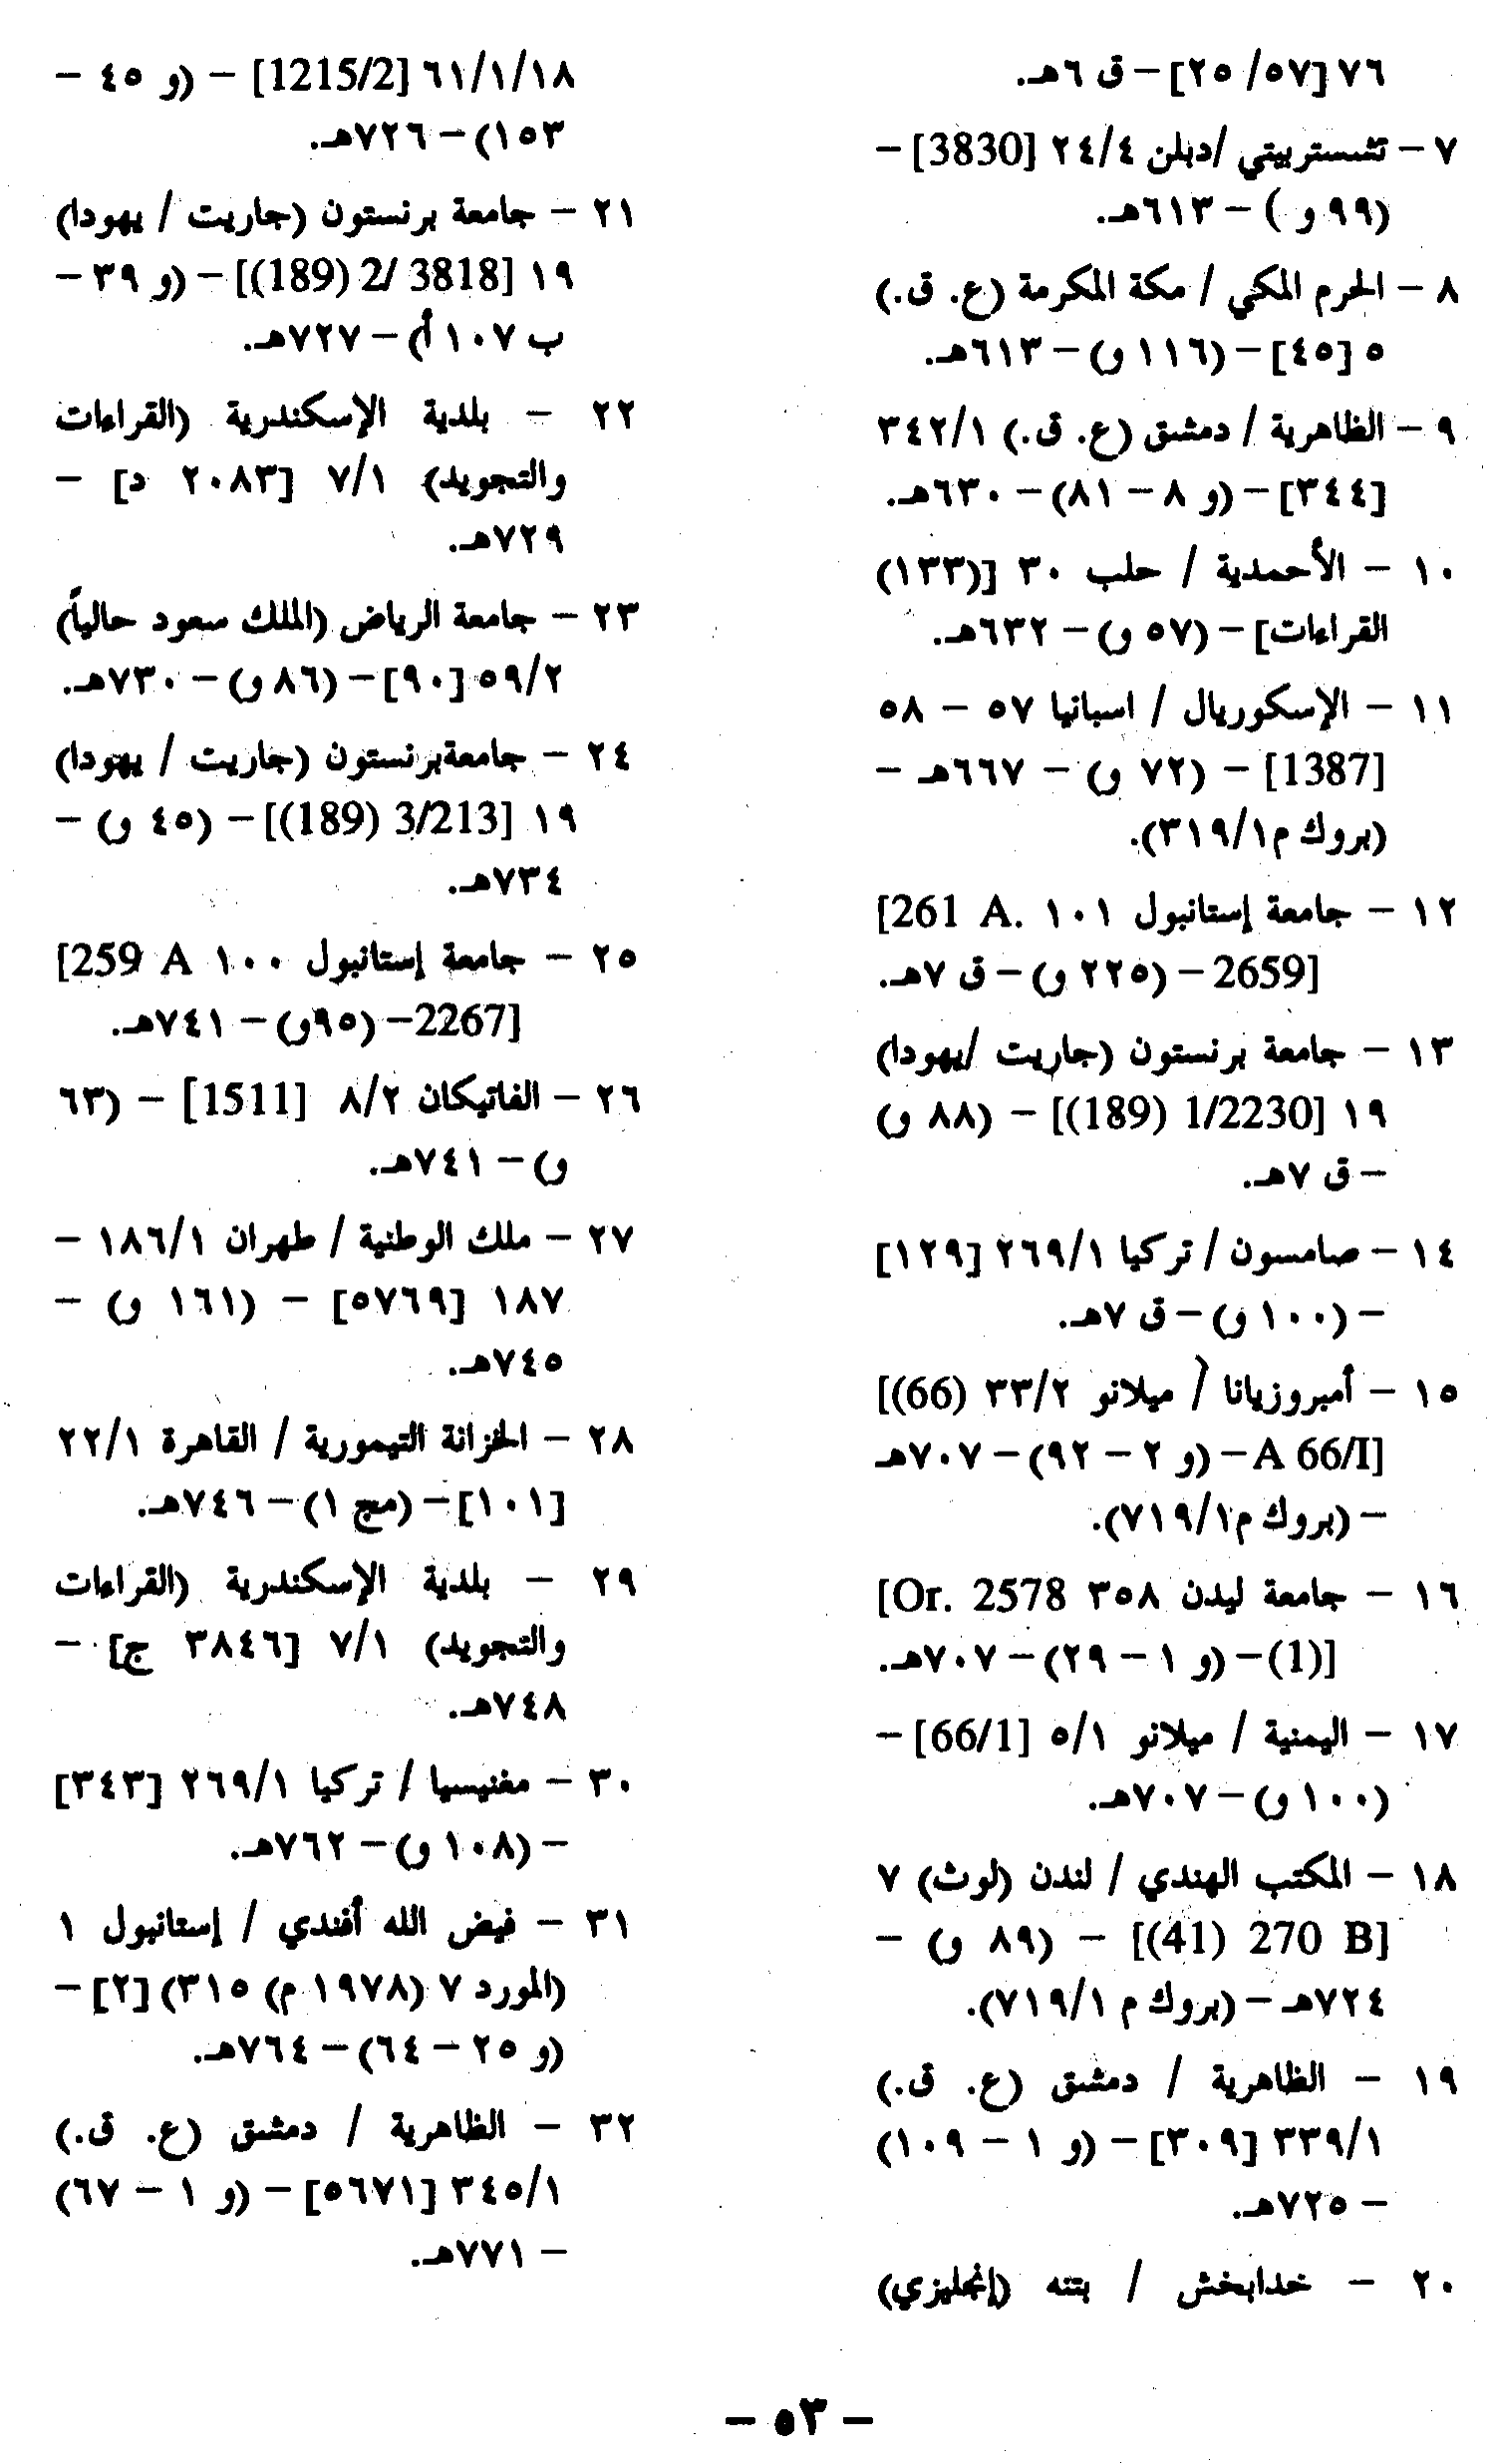 ٧٦ [٥٧/ ٢٥] – ق ٦هـ.
٧ – تشستربيتي /دبلن ٢٤/٤ [3830] –
(٩٩ و ) – ٦١٣هـ.
٨ – الحرم المكي / مكة المكرمة (ع. ق.)
٥ [٤٥] – (١١٦ و) – ٦١٣هـ.
٩ – الظاهرية / دمشق (ع. ق.) ٣٤٢/١
[٣٤٤] – (و ٨ – ٨١) – ٦٣٠هـ.
١٠ – الأحمدية / حلب ٣٠ [(١٣٣)
القراءات] – (٥٧ و) – ٦٣٢هـ.
١١ – الإسكوريال / اسبانيا ٥٧ – ٥٨
[1387] – (٧٢ و) – ٦٦٧هـ –
(بروك م٣١٩/١).
١٢ – جامعة إستانبول ١٠١ [261 A.
2659] – (٢٢٥ و) – ق ٧هـ.
١٣ – جامعة برنستون (جاريت /يهودا)
١٩ [1/2230 (189)] – (٨٨ و)
– ق ٧هـ.
١٤ – صامسون / تركيا ٢٦٩/١ [١٢٩]
– (١٠٠ و) – ق ٧هـ.
١٥ – أمبروزيانا / ميلانو ٣٣/٢ [(66)
A 66/I] – (و ٢ – ٩٢) – ٧٠٧هـ
– (بروك م٧١٩/١).
١٦ – جامعة ليدن ٣٥٨ [Or. 2578
(1)] – (و ١ – ٢٩) – ٧٠٧هـ.
١٧ – اليمنية / ميلانو ٥/١ [66/1] –
(١٠٠ و) – ٧٠٧هـ.
١٨ – المكتب الهندي / لندن (لوث) ٧
[270 B (41)] – (٨٩ و) –
٧٢٤هـ – (بروك م ٧١٩/١).
١٩ – الظاهرية / دمشق (ع. ق.)
٣٣٩/١ [٣٠٩] – (و ١ – ١٠٩)
– ٧٢٥هـ.
٢٠ – خدابخش / بتنه (إنجليزي)
٦١/١/١٨ [1215/2] – (و ٤٥ –
١٥٣) – ٧٢٦هـ.
٢١ – جامعة برنستون (جاريت / يهودا)
١٩ [3818 /2 (189)] – (و ٣٩ –
ب ١٠٧ أ) – ٧٢٧هـ.
٢٢ – بلدية الإسكندرية (القراءات
والتجويد) ٧/١ [٢٠٨٣ د] –
٧٢٩هـ.
٢٣ – جامعة الرياض (الملك سعود حالياً)
٥٩/٢ [٩٠] – (٨٦ و) – ٧٣٠هـ.
٢٤ – جامعةبرنستون (جاريت / يهودا)
١٩ [3/213 (189)] – (٤٥ و) –
٧٣٤هـ.
٢٥ – جامعة إستانبول ١٠٠ [259 A
2267] – (٩٥و) – ٧٤١هـ.
٢٦ – الفاتيكان ٨/٢ [1511] – (٦٣
و) – ٧٤١هـ.
٢٧ – ملك الوطنية / طهران ١٨٦/١ –
١٨٧ [٥٧٦٩] – (١٦١ و) –
٧٤٥هـ.
٢٨ – الخزانة التيمورية / القاهرة ٢٢/١
[١٠١] – (مج ١) – ٧٤٦هـ.
٢٩ – بلدية الإسكندرية (القراءات
والتجويد) ٧/١ [٣٨٤٦ ج] –
٧٤٨هـ.
٣٠ – مغنيسيا / تركيا ٢٦٩/١ [٣٤٣]
– (١٠٨ و) – ٧٦٢هـ.
٣١ – فيض الله أفندي / إستانبول ١
(المورد ٧ (١٩٧٨ م) ٣١٥) [٢] –
(و ٢٥ – ٦٤) – ٧٦٤هـ.
٣٢ – الظاهرية / دمشق (ع. ق.)
٣٤٥/١ [٥٦٧١] – (و ١ – ٦٧)
– ٧٧١هـ.
– ٥٣ –